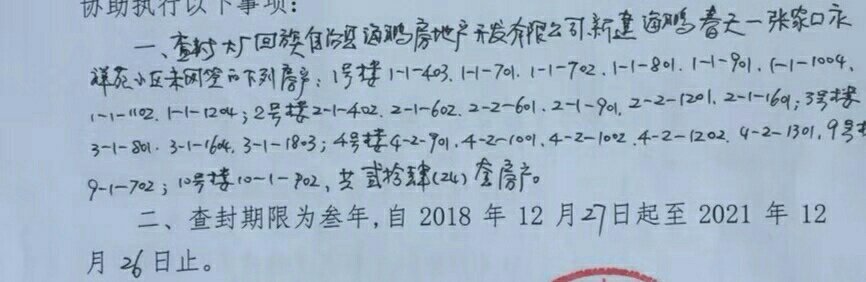 协助执行以下事项：
一、查封大厂回族自治县海鹏房地产开发有限公司新建海鹏春天一张家口永
祥苑小区未网签的下列房产：1号楼1-1-403、1-1-701、1-1-702、1-1-801、1-1-901、1-1-1004、
1-1-1102、1-1-1204；2号楼2-1-402、2-1-602、2-2-601、2-1-901、2-2-1201、2-1-1601；3号楼
3-1-801、3-1-1604、3-1-1803；4号楼4-2-901、4-2-1001、4-2-1002、4-2-1202、4-2-1301、9号楼
9-1-702；10号楼10-1-902，共贰拾肆(24)套房产。
二、查封期限为叁年，自 2018 年 12 月27日起至 2021 年 12
月 26 日止。